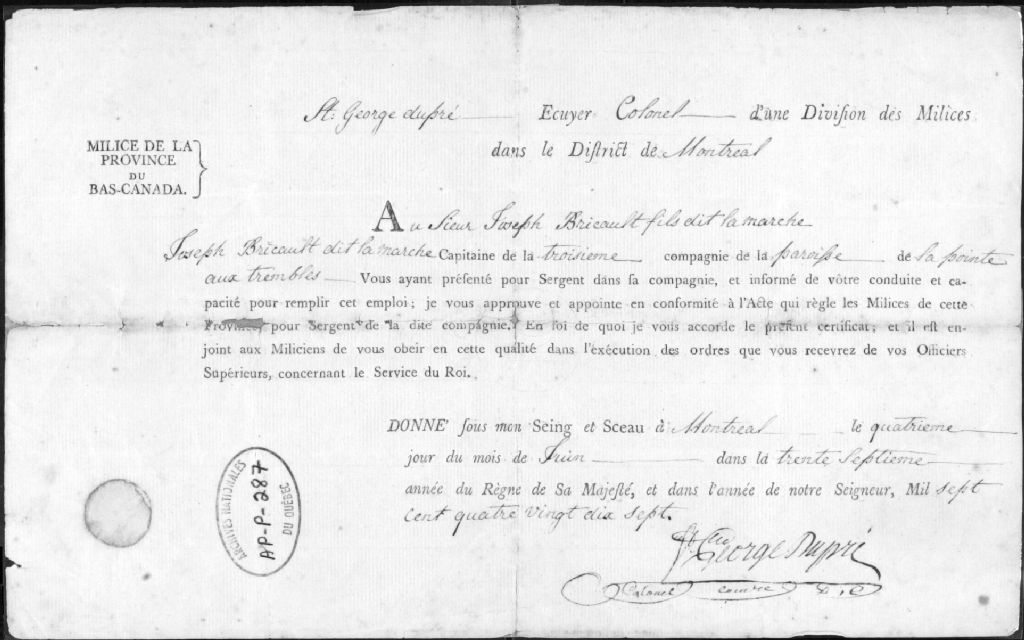 St: George dupré Ecuyer Colonel d'une Division des Milices
dans le District de Montreal
MILICE DE LA
PROVINCE
DU
BAS-CANADA.
Au Sieur Joseph Bricault fils dit lamarche
Joseph Bricault dit lamarche Capitaine de la troisieme compagnie de la paroisse de la pointe
aux trembles Vous ayant présenté pour Sergent dans sa compagnie, et informé de vôtre conduite et ca-
pacité pour remplir cet emploi; je vous approuve et appointe en conformité à l'Acte qui règle les Milices de cette
Province, pour Sergent de la dite compagnie. En foi de quoi je vous accorde le présent certificat; et il est en-
joint aux Miliciens de vous obeir en cette qualité dans l'éxécution des ordres que vous recevrez de vos Officiers
Supérieurs, concernant le Service du Roi.
DONNE' sous mon Seing et Sceau à Montreal le quatrieme
jour du mois de Juin dans la trente Septieme
année du Règne de Sa Majesté, et dans l'année de notre Seigneur, Mil sept
cent quatre vingt dix sept.
George Dupré
Colonel
ARCHIVES NATIONALES
AP-P-287
DU QUÉBEC